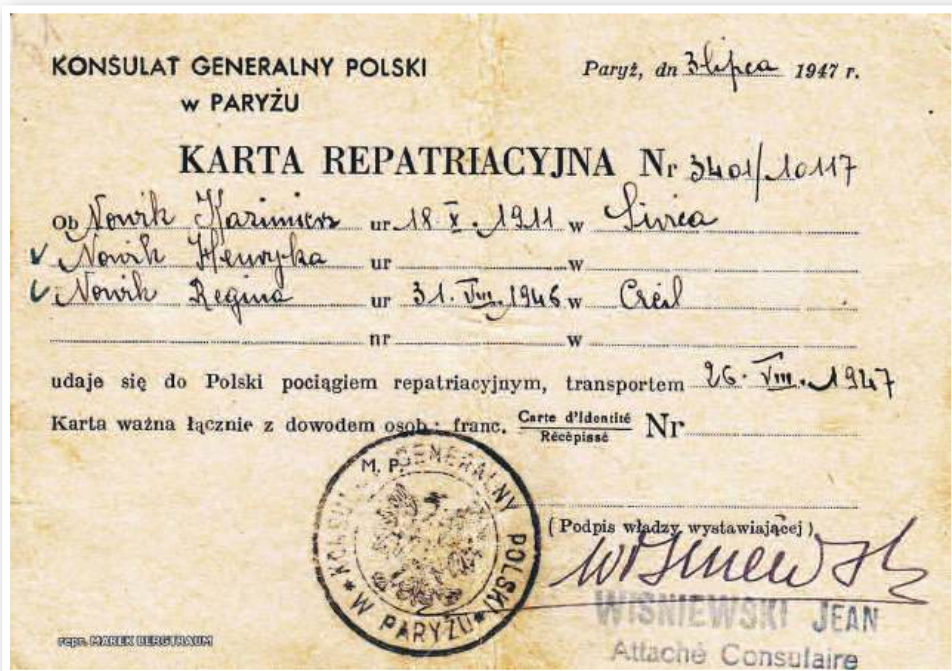 KONSULAT GENERALNY POLSKI
w PARYŻU
Paryż, dn 3 lipca 1947 r.
KARTA REPATRIACYJNA Nr 3401/10117
Ob Nowik Kazimierz ur 18 X. 1911 w
Nowik Henryka ur w
Nowik Regina ur 31. VIII. 1946 w Creil
nr w
udaje się do Polski pociągiem repatriacyjnym, transportem 26. VIII. 1947
Karta ważna łącznie z dowodem osob.: franc. Carte d'Identité Nr
Récépissé
M. P.
KONSULAT GENERALNY POLSKI
W PARYŻU
(Podpis władzy wystawiającej)
WISNIEWSKI JEAN
Attaché Consulaire
repr. MAREK BERGTRAUM